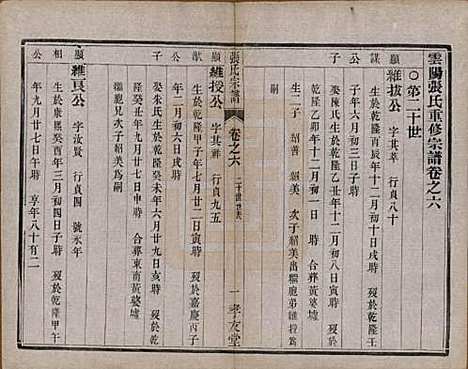 雲陽張氏重修宗譜卷之六
○第二十世
顯謨公
維拔公 字其萃 行貞八十
生於乾隆丙辰年十二月初十日戌時 歿於乾隆壬
子年六月初三日子時
娶陳氏生於乾隆乙丑年十二月初八日辰時 歿於
乾隆乙卯年十二月初一日時 合葬黃婆墩
生二子 紹普 紹美 次子紹美出繼胞弟維授爲
嗣
張氏宗譜 卷之六 二十世世表 一 孝友堂
顯猷公
維授公 字其 行貞九五
生於乾隆甲子年七月二十二日寅時 歿於嘉慶丙
寅年二月初六日戌時
娶朱氏生於乾隆癸未年六月廿九日亥時 歿於乾
隆癸丑年九月廿七日申時 合葬東南黃婆墩
繼胞兄次子紹美爲嗣
顯相公
維貞公 字汝賢 行貞四 號永年
生於康熙癸酉年三月初四日子時 歿於乾隆甲午
年九月廿七日午時 享年八十有二